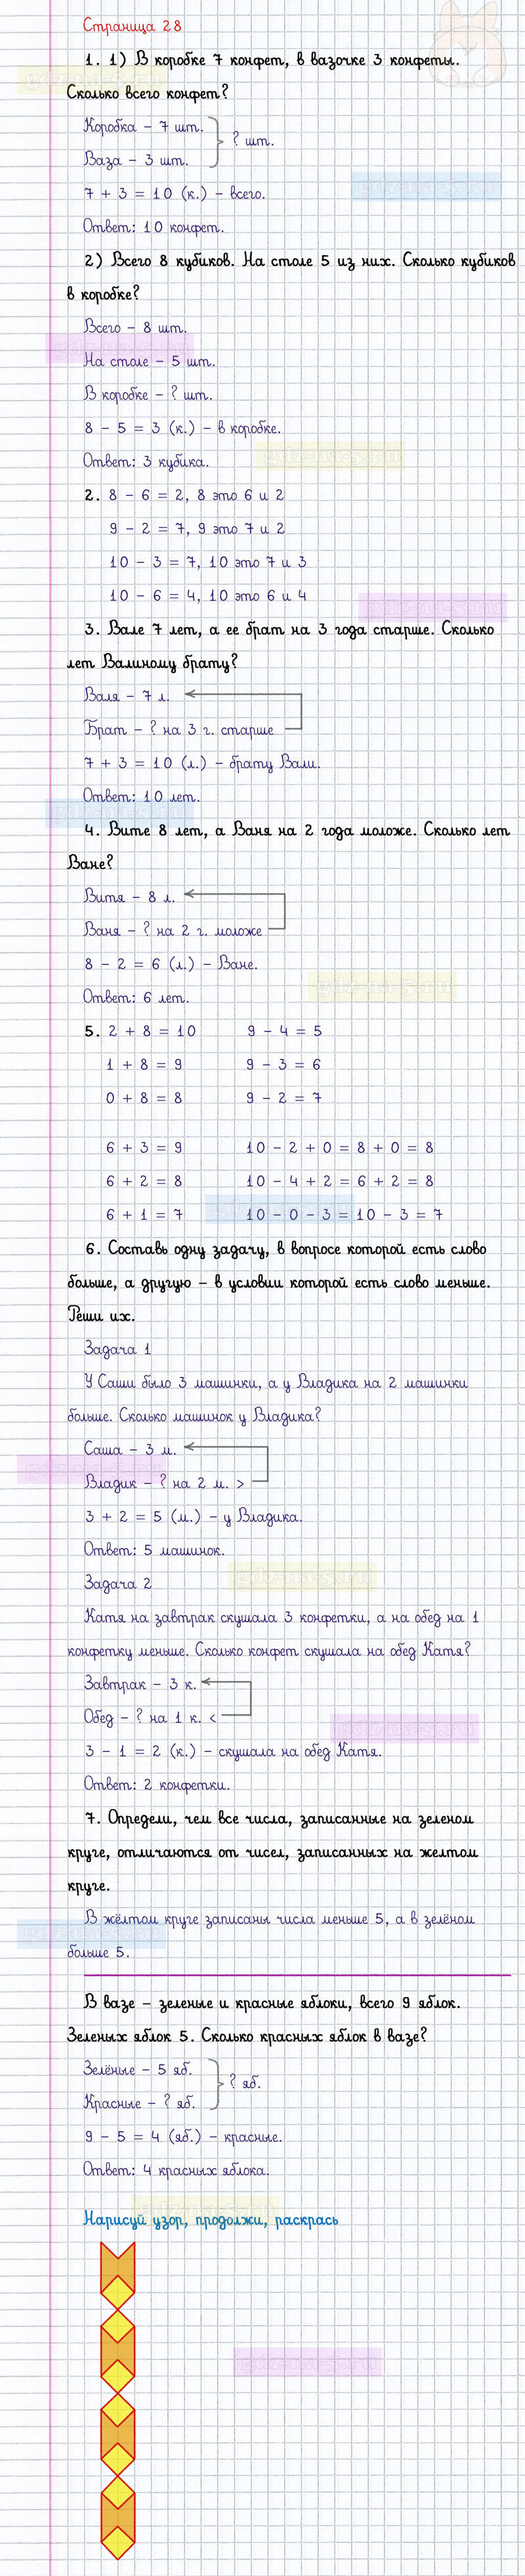 Страница 28
1. 1) В коробке 7 конфет, в вазочке 3 конфеты.
Сколько всего конфет?
Коробка – 7 шт.
? шт.
Ваза – 3 шт.
7 + 3 = 10 (к.) – всего.
Ответ: 10 конфет.
2) Всего 8 кубиков. На столе 5 из них. Сколько кубиков
в коробке?
Всего – 8 шт.
На столе – 5 шт.
В коробке – ? шт.
8 – 5 = 3 (к.) – в коробке.
Ответ: 3 кубика.
2. 8 – 6 = 2, 8 это 6 и 2
9 – 2 = 7, 9 это 7 и 2
10 – 3 = 7, 10 это 7 и 3
10 – 6 = 4, 10 это 6 и 4
3. Вале 7 лет, а ее брат на 3 года старше. Сколько
лет Валиному брату?
Валя – 7 л.
Брат – ? на 3 г. старше
7 + 3 = 10 (л.) – брату Вали.
Ответ: 10 лет.
4. Вите 8 лет, а Ваня на 2 года моложе. Сколько лет
Ване?
Витя – 8 л.
Ваня – ? на 2 г. моложе
8 – 2 = 6 (л.) – Ване.
Ответ: 6 лет.
5. 2 + 8 = 10 9 – 4 = 5
1 + 8 = 9 9 – 3 = 6
0 + 8 = 8 9 – 2 = 7
6 + 3 = 9 10 – 2 + 0 = 8 + 0 = 8
6 + 2 = 8 10 – 4 + 2 = 6 + 2 = 8
6 + 1 = 7 10 – 0 – 3 = 10 – 3 = 7
6. Составь одну задачу, в вопросе которой есть слово
больше, а другую – в условии которой есть слово меньше.
Реши их.
Задача 1
У Саши было 3 машинки, а у Владика на 2 машинки
больше. Сколько машинок у Владика?
Саша – 3 м.
Владик – ? на 2 м. >
3 + 2 = 5 (м.) – у Владика.
Ответ: 5 машинок.
Задача 2
Катя на завтрак скушала 3 конфетки, а на обед на 1
конфетку меньше. Сколько конфет скушала на обед Катя?
Завтрак – 3 к.
Обед – ? на 1 к. <
3 – 1 = 2 (к.) – скушала на обед Катя.
Ответ: 2 конфетки.
7. Определи, чем все числа, записанные на зеленом
круге, отличаются от чисел, записанных на желтом
круге.
В жёлтом круге записаны числа меньше 5, а в зелёном
больше 5.
В вазе – зеленые и красные яблоки, всего 9 яблок.
Зеленых яблок 5. Сколько красных яблок в вазе?
Зелёные – 5 яб.
? яб.
Красные – ? яб.
9 – 5 = 4 (яб.) – красные.
Ответ: 4 красных яблока.
Нарисуй узор, продолжи, раскрась